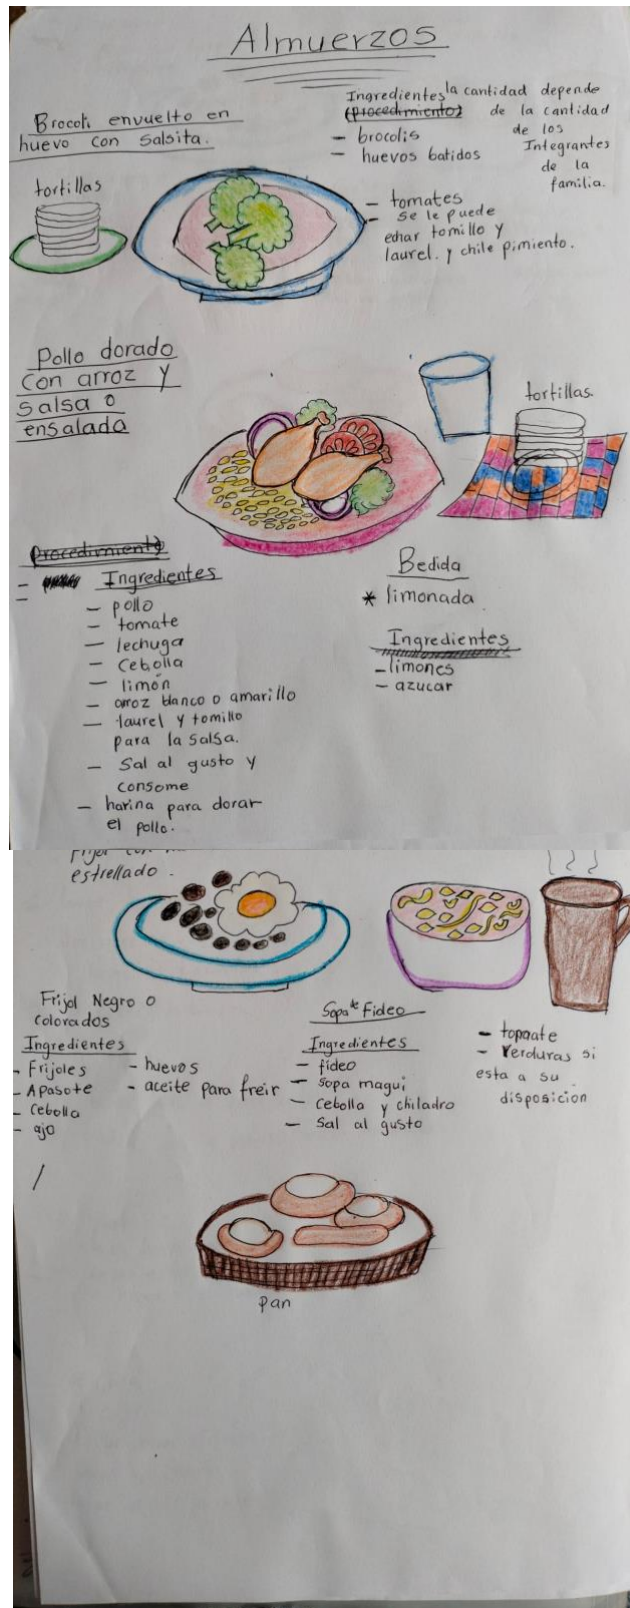 Almuerzos
Brocoli envuelto en
huevo con salsita.
Ingredientes la cantidad depende
(procedimiento) de la cantidad
de los
Integrantes
de la
familia.
- brocolis
- huevos batidos
- tomates
- se le puede
echar tomillo y
laurel. y chile pimiento.
tortillas
Pollo dorado
con arroz y
salsa o
ensalada
tortillas
procedimiento
Ingredientes
- pollo
- tomate
- lechuga
- cebolla
- limón
- arroz blanco o amarillo
- laurel y tomillo
para la salsa.
- Sal al gusto y
consome
- harina para dorar
el pollo.
Bedida
* limonada
Ingredientes
- limones
- azucar
estrellado.
Frijol Negro o
colorados
Ingredientes
- Frijoles
- Apasote
- Cebolla
- ajo
- huevos
- aceite para freir
Sopa de Fideo
Ingredientes
- fideo
- sopa magui
- cebolla y chiladro
- sal al gusto
- topaate
- Verduras si
esta a su
disposicion
pan